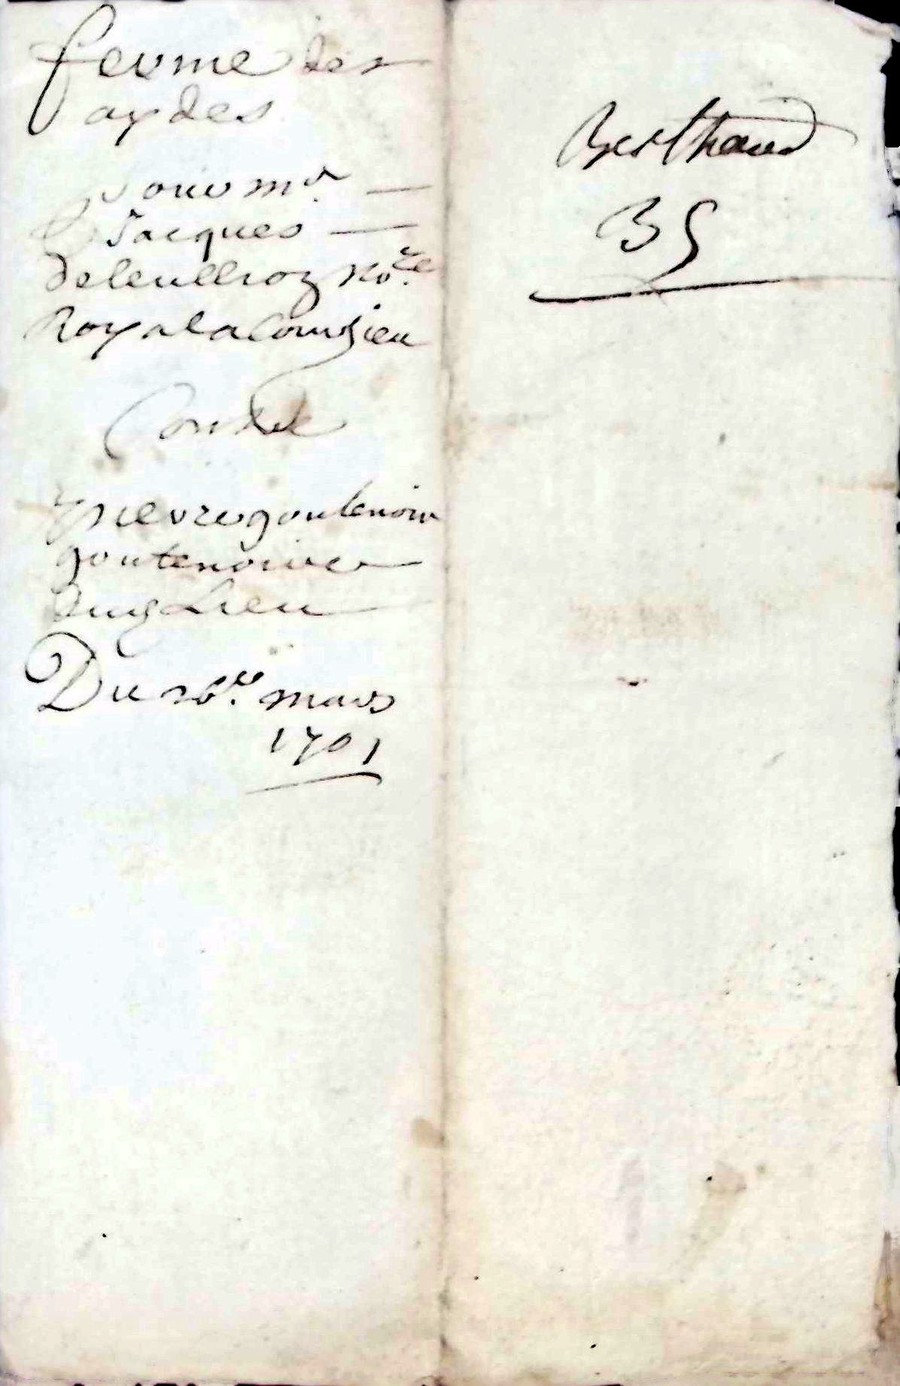 ferme des
aydes
pour mr
Jacques
deleullion No.re
Royal a Courzieu
Contre
pierre goutenoire
goutenoire
dud Lieu
Du 26.e mars
1701
Berthaud
BS